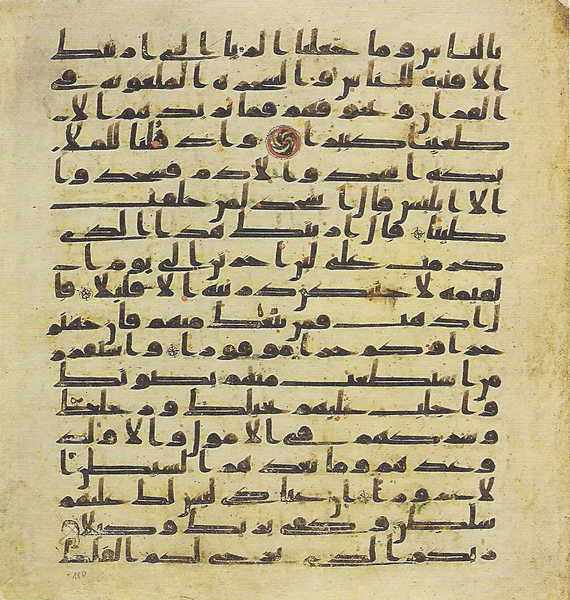 بالناس وما جعلنا الريا التى ارينك
الا فتنة للناس والشجرة الملعونة فى
القران ونخوفهم فما يزيدهم الا
طغينا كبيرا واذ قلنا للملا
ئكة اسجدوا لادم فسجدوا
الا ابليس قال ااسجد لمن خلقت
طينا قال اريتك هذا الذى
كرمت على لئن اخرتن الى يوم ا
لقيمة لاحتنكن ذريته الا قليلا قا
ل اذهب فمن تبعك منهم فان جهنم
جزاوكم جزا موفورا واستفزز
من استطعت منهم بصوتك
واجلب عليهم بخيلك ورجلك
وشركهم فى الامول والاولد
وعدهم وما يعدهم الشيطن ا
لا غرورا ان عبادى ليس لك عليهم
سلطن وكفى بربك وكيلا
ربكم الذى يزجى لكم الفلك